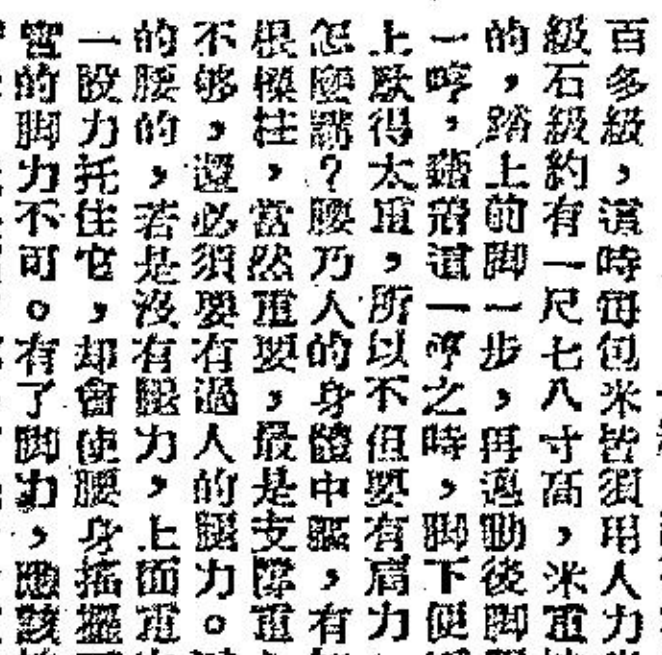 百多級,這時每包米皆須用人力
級石級約有一尺七八寸高,米重
的,踏上的脚一步,再邁動後脚
一哼,藉着這一哼之時,脚下便
上得太重,所以不但要有肩力
怎麼講?腰乃人的身體中軀,有
根樑柱,當然重要,最是支撐重
不够,還必須要有過人的腿力。
的腰的,若是沒有腿力,上面重
一股力托住它,却會使腰身搖擺
的脚力不可。有了脚力,應該